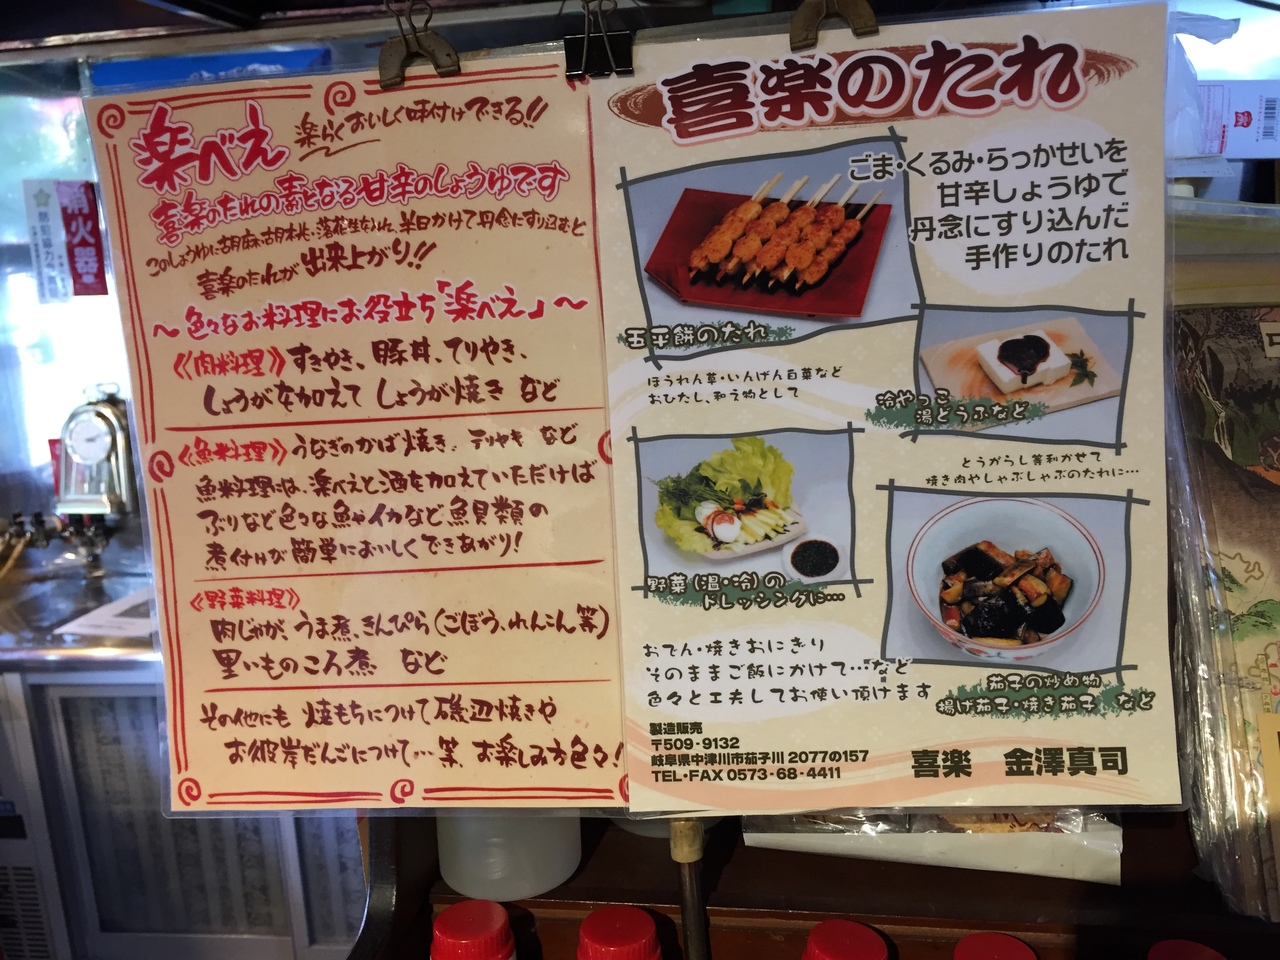 楽べえ
楽らくおいしく味付けできる!!
喜楽のたれの素となる甘辛のしょうゆです
このしょうゆに胡麻・胡桃・落花生を入れ、半日かけて丹念にすり込むと
喜楽のたれが出来上がり!!
〜色々なお料理にお役立ち「楽べえ」〜
《肉料理》すきやき、豚丼、てりやき、
しょうがを加えてしょうが焼きなど
《魚料理》うなぎのかば焼き、テリヤキなど
魚料理には、楽べえと酒を加えていただけば
ぶりなど色々な魚やイカなど魚貝類の
煮付けが簡単においしくできあがり!
《野菜料理》
肉じゃが、うま煮、きんぴら(ごぼう、れんこん等)
里いものころ煮 など
その他にも 焼もちにつけて磯辺焼きや
お彼岸だんごにつけて…等、お楽しみ方色々!
喜楽のたれ
ごま・くるみ・らっかせいを
甘辛しょうゆで
丹念にすり込んだ
手作りのたれ
五平餅のたれ
ほうれん草・いんげん白菜など
おひたし、和え物として
冷やっこ
湯どうふなど
とうがらし等利かせて
焼き肉やしゃぶしゃぶのたれに…
野菜(温・冷)の
ドレッシングに…
おでん・焼きおにぎり
そのままご飯にかけて…など
色々と工夫してお使い頂けます
茄子の炒め物
揚げ茄子・焼き茄子 など
製造販売
〒509-9132
岐阜県中津川市茄子川2077の157
TEL・FAX 0573-68-4411
喜楽 金澤真司
消火器